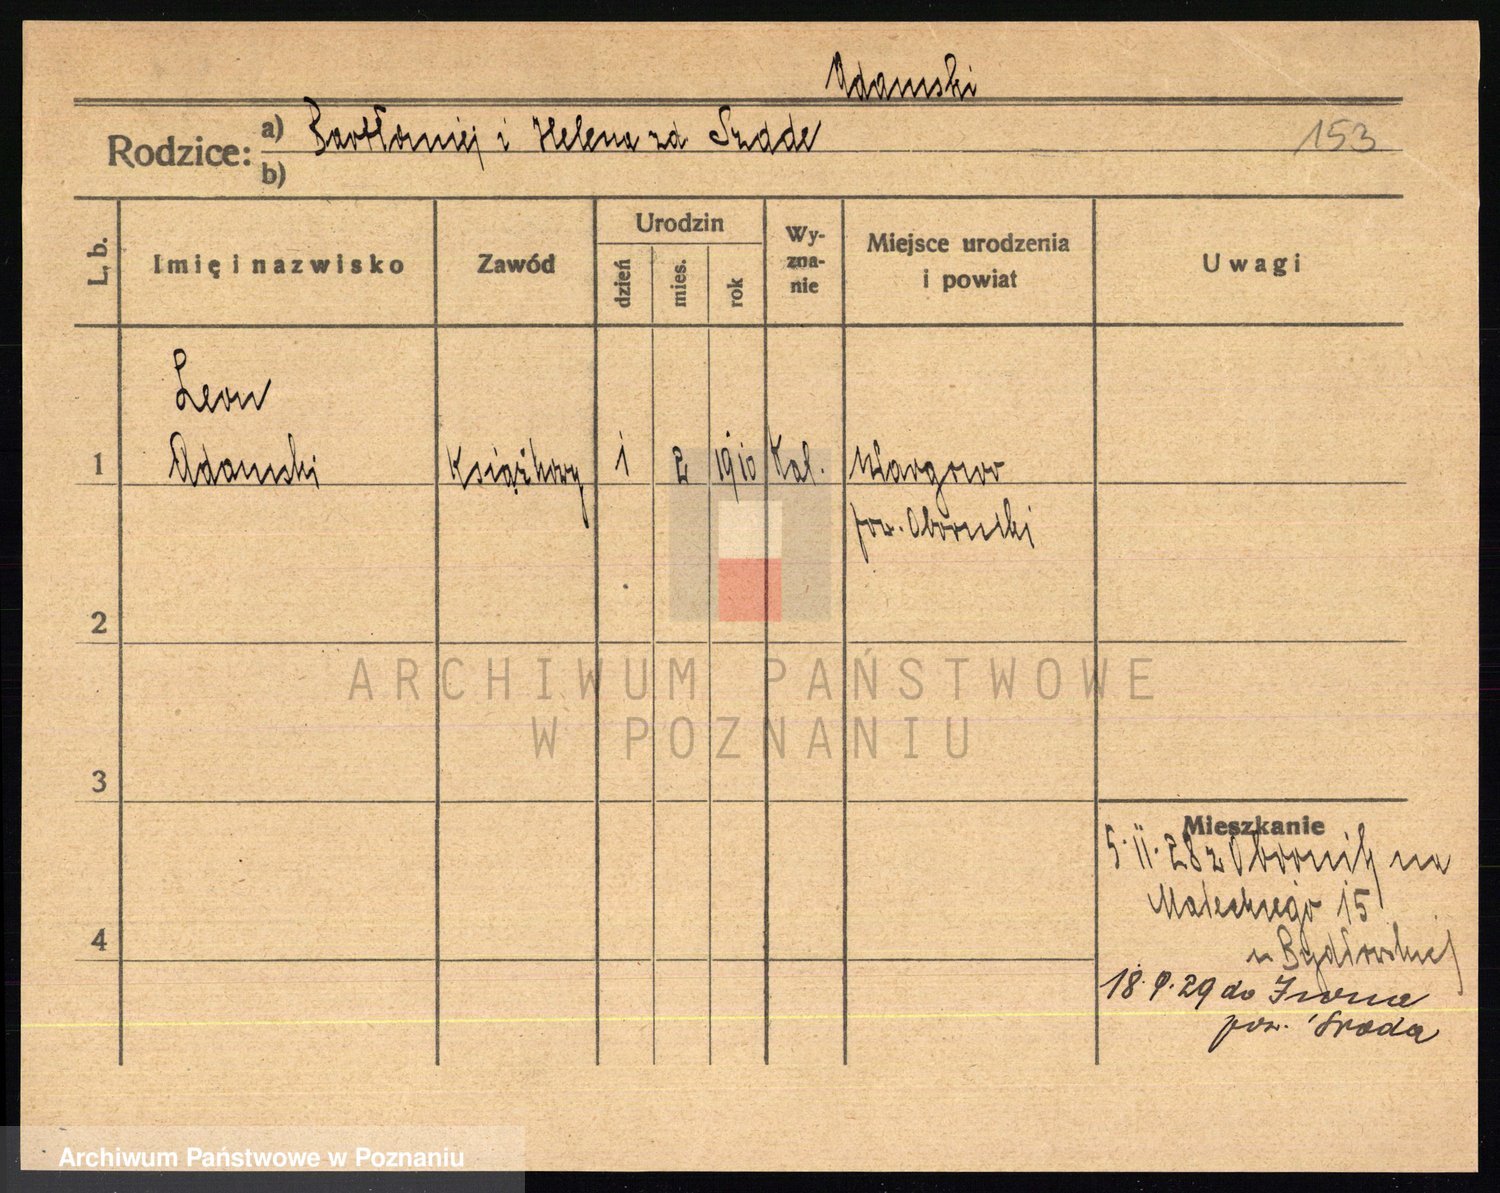 Adamski
Rodzice: a) Bartłomiej i Helena zd Szade
153
b)
L. b.
Imię i nazwisko
Zawód
Urodzin
dzień
mies.
rok
Wy-
zna-
nie
Miejsce urodzenia
i powiat
Uwagi
Leon
1 Adamski Książkowy 1 2 1910 Kat. Wargowo
pow. Obornicki
2
ARCHIWUM PAŃSTWOWE
W POZNANIU
3
Mieszkanie
5.II.28 z Obornik na
Małeckiego 15
u
4
18.9.29 do
pow. Środa
Archiwum Państwowe w Poznaniu